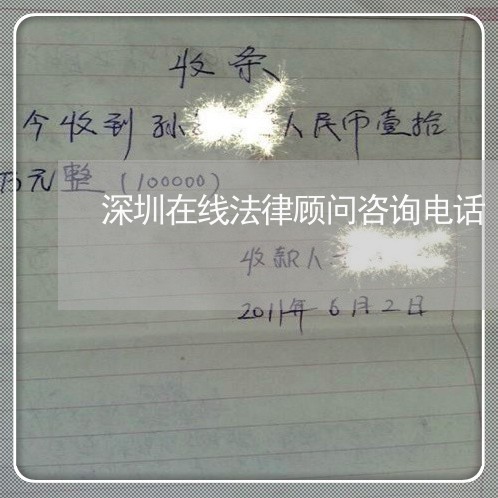 收条
今收到孙 人民币壹拾
万元整(100000)
深圳在线法律顾问咨询电话
收款人
2011年6月2日